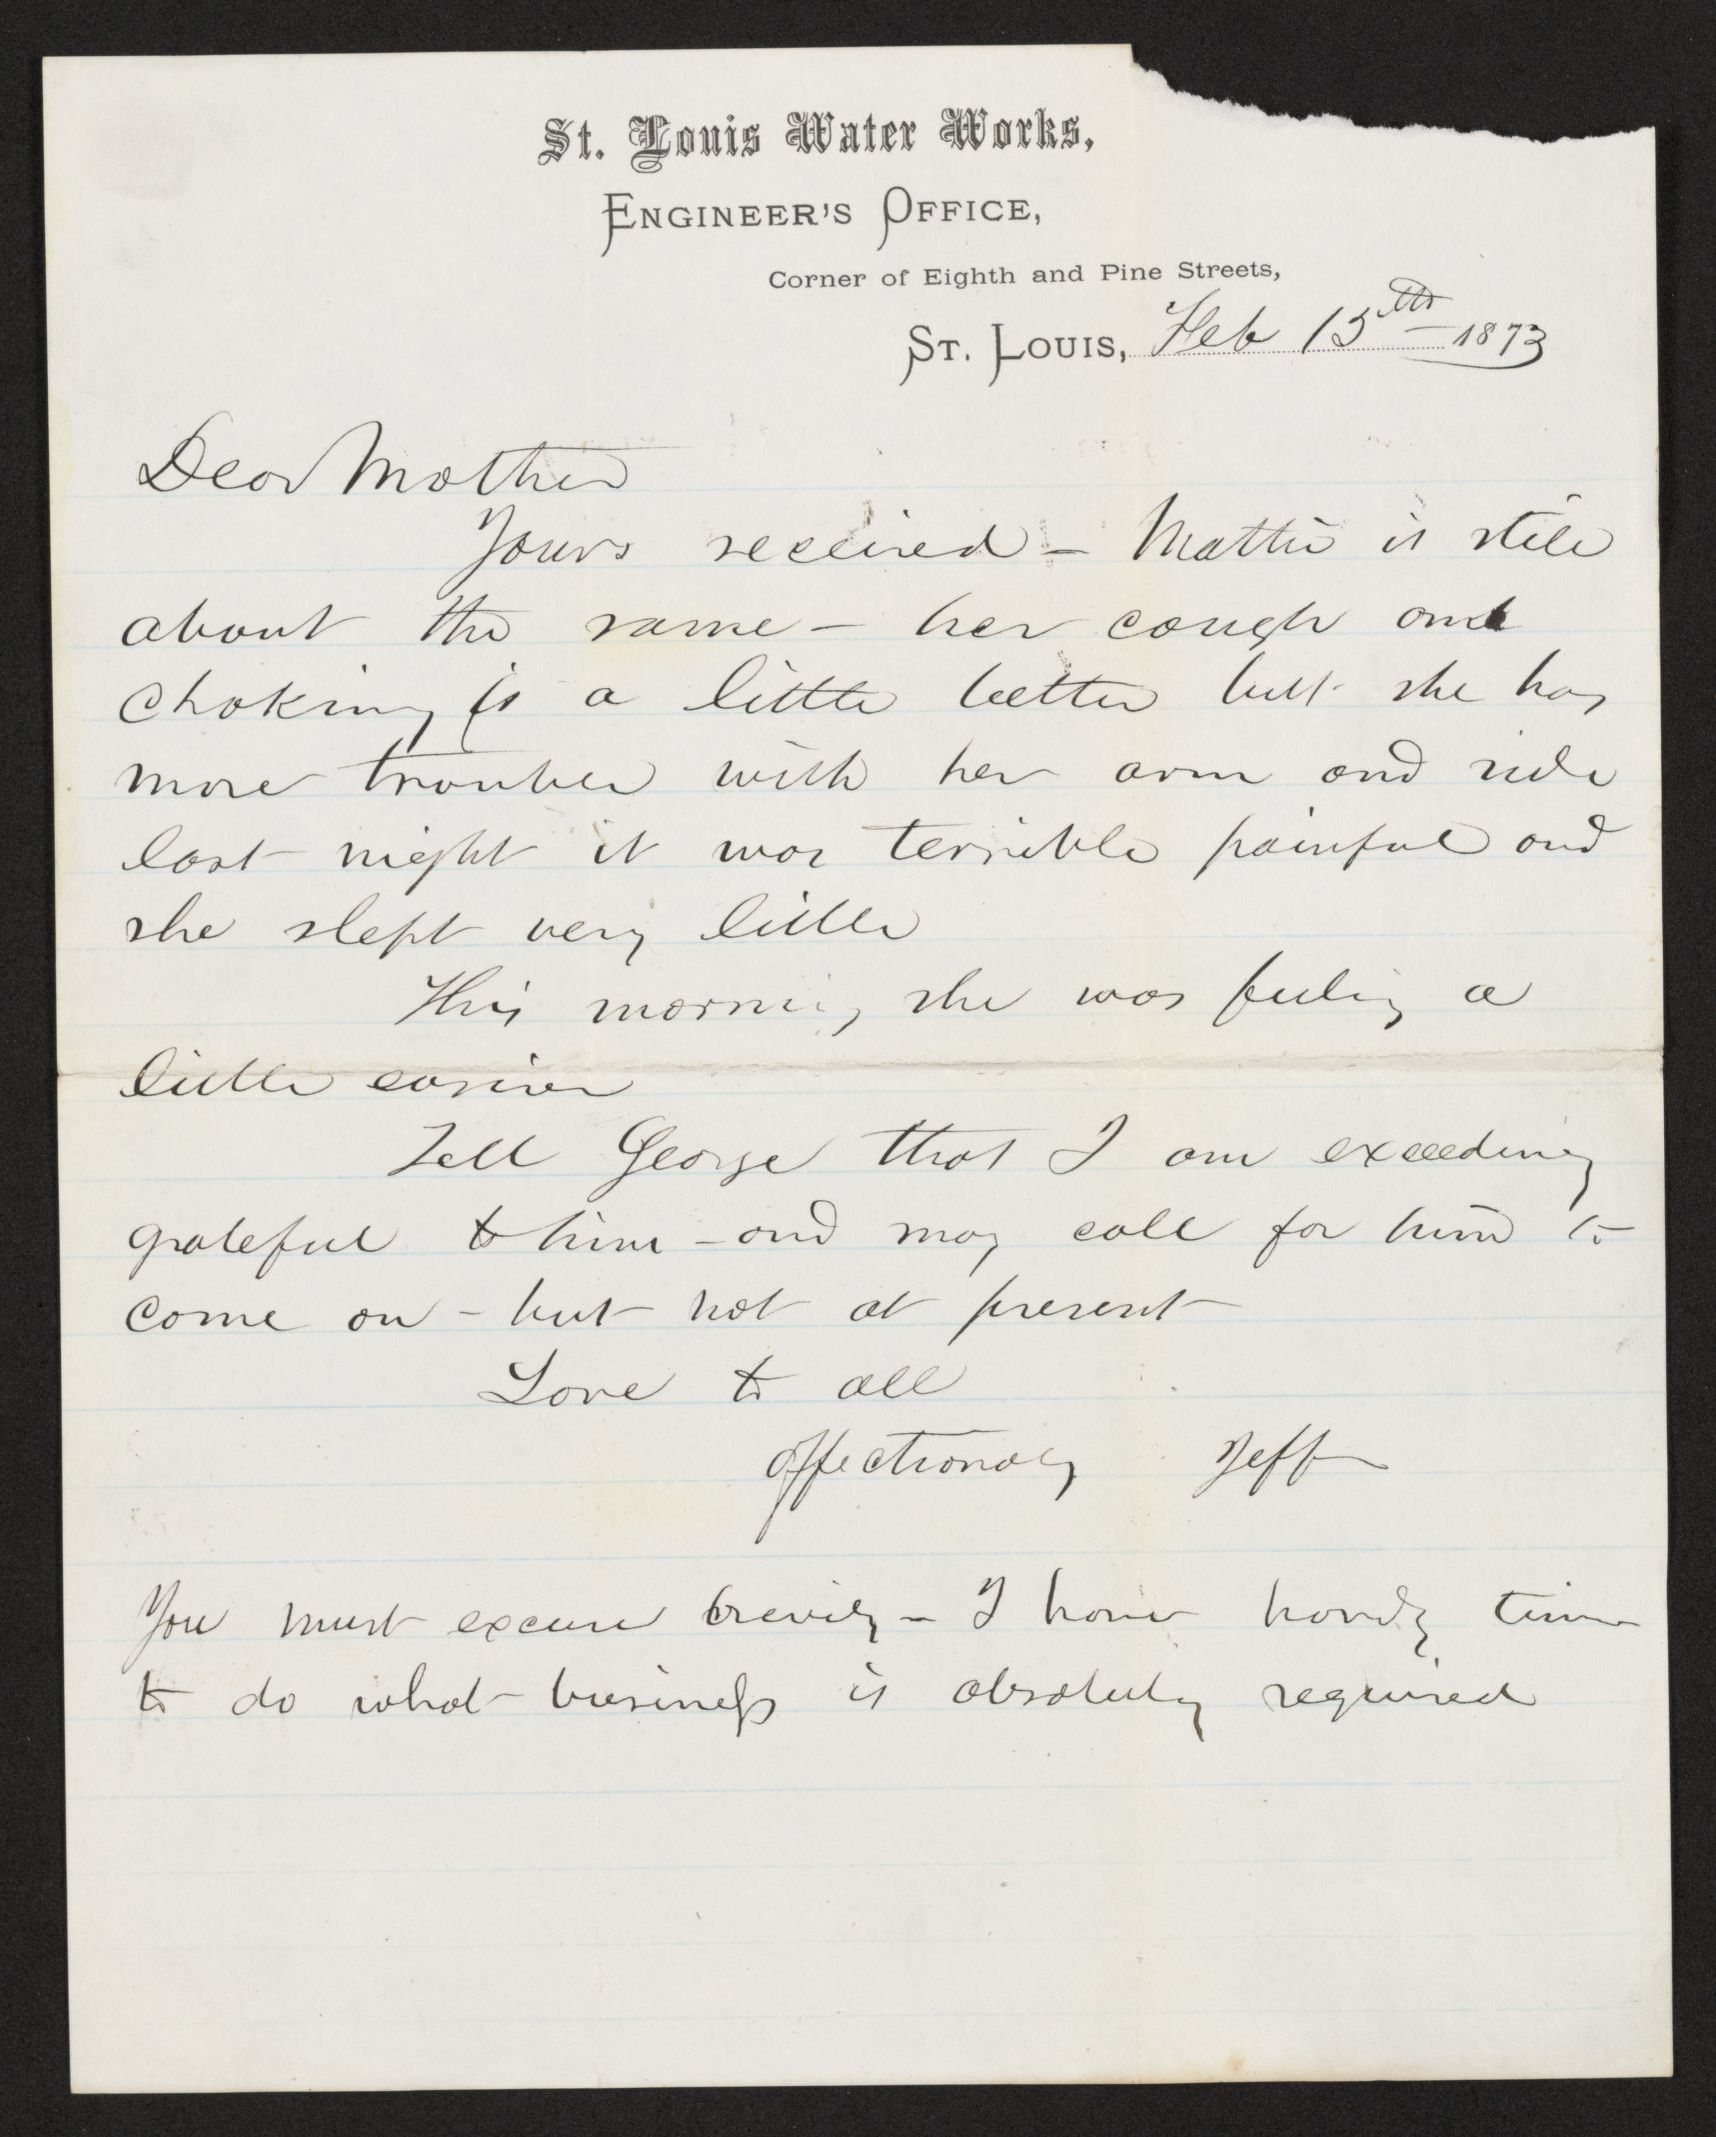 St. Louis Water Works,
Engineer's Office,
Corner of Eighth and Pine Streets,
St. Louis, Feb 15th 1873
Dear Mother
Yours received – Mattie is still
about the same – her cough and
choking is a little better but she has
more trouble with her arm and side
last night it was terrible painful and
she slept very little
This morning she was feeling a
little easier
Tell George that I am exceeding
grateful to him – and may call for him to
come on – but not at present
Love to all
affectionaly Jeff
You must excuse brevity – I have hardly time
to do what business is absolutely required